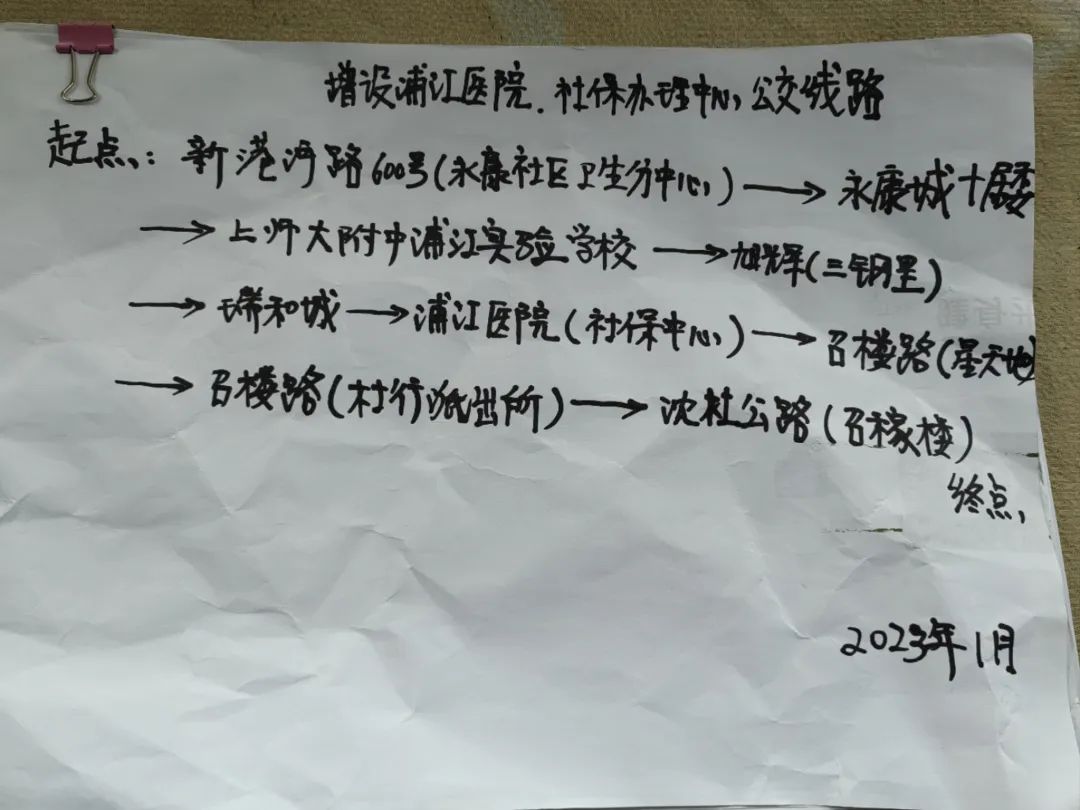 增设浦江医院.社保办理中心公交线路
起点：新港河路600号(永康社区卫生分中心)→永康城十居委
→上师大附中浦江实验学校→旭辉(三钥里)
→瑞和城→浦江医院(社保中心)→召楼路(星天地)
→召楼路(村行派出所)→沈杜公路(召稼楼)
终点
2023年1月